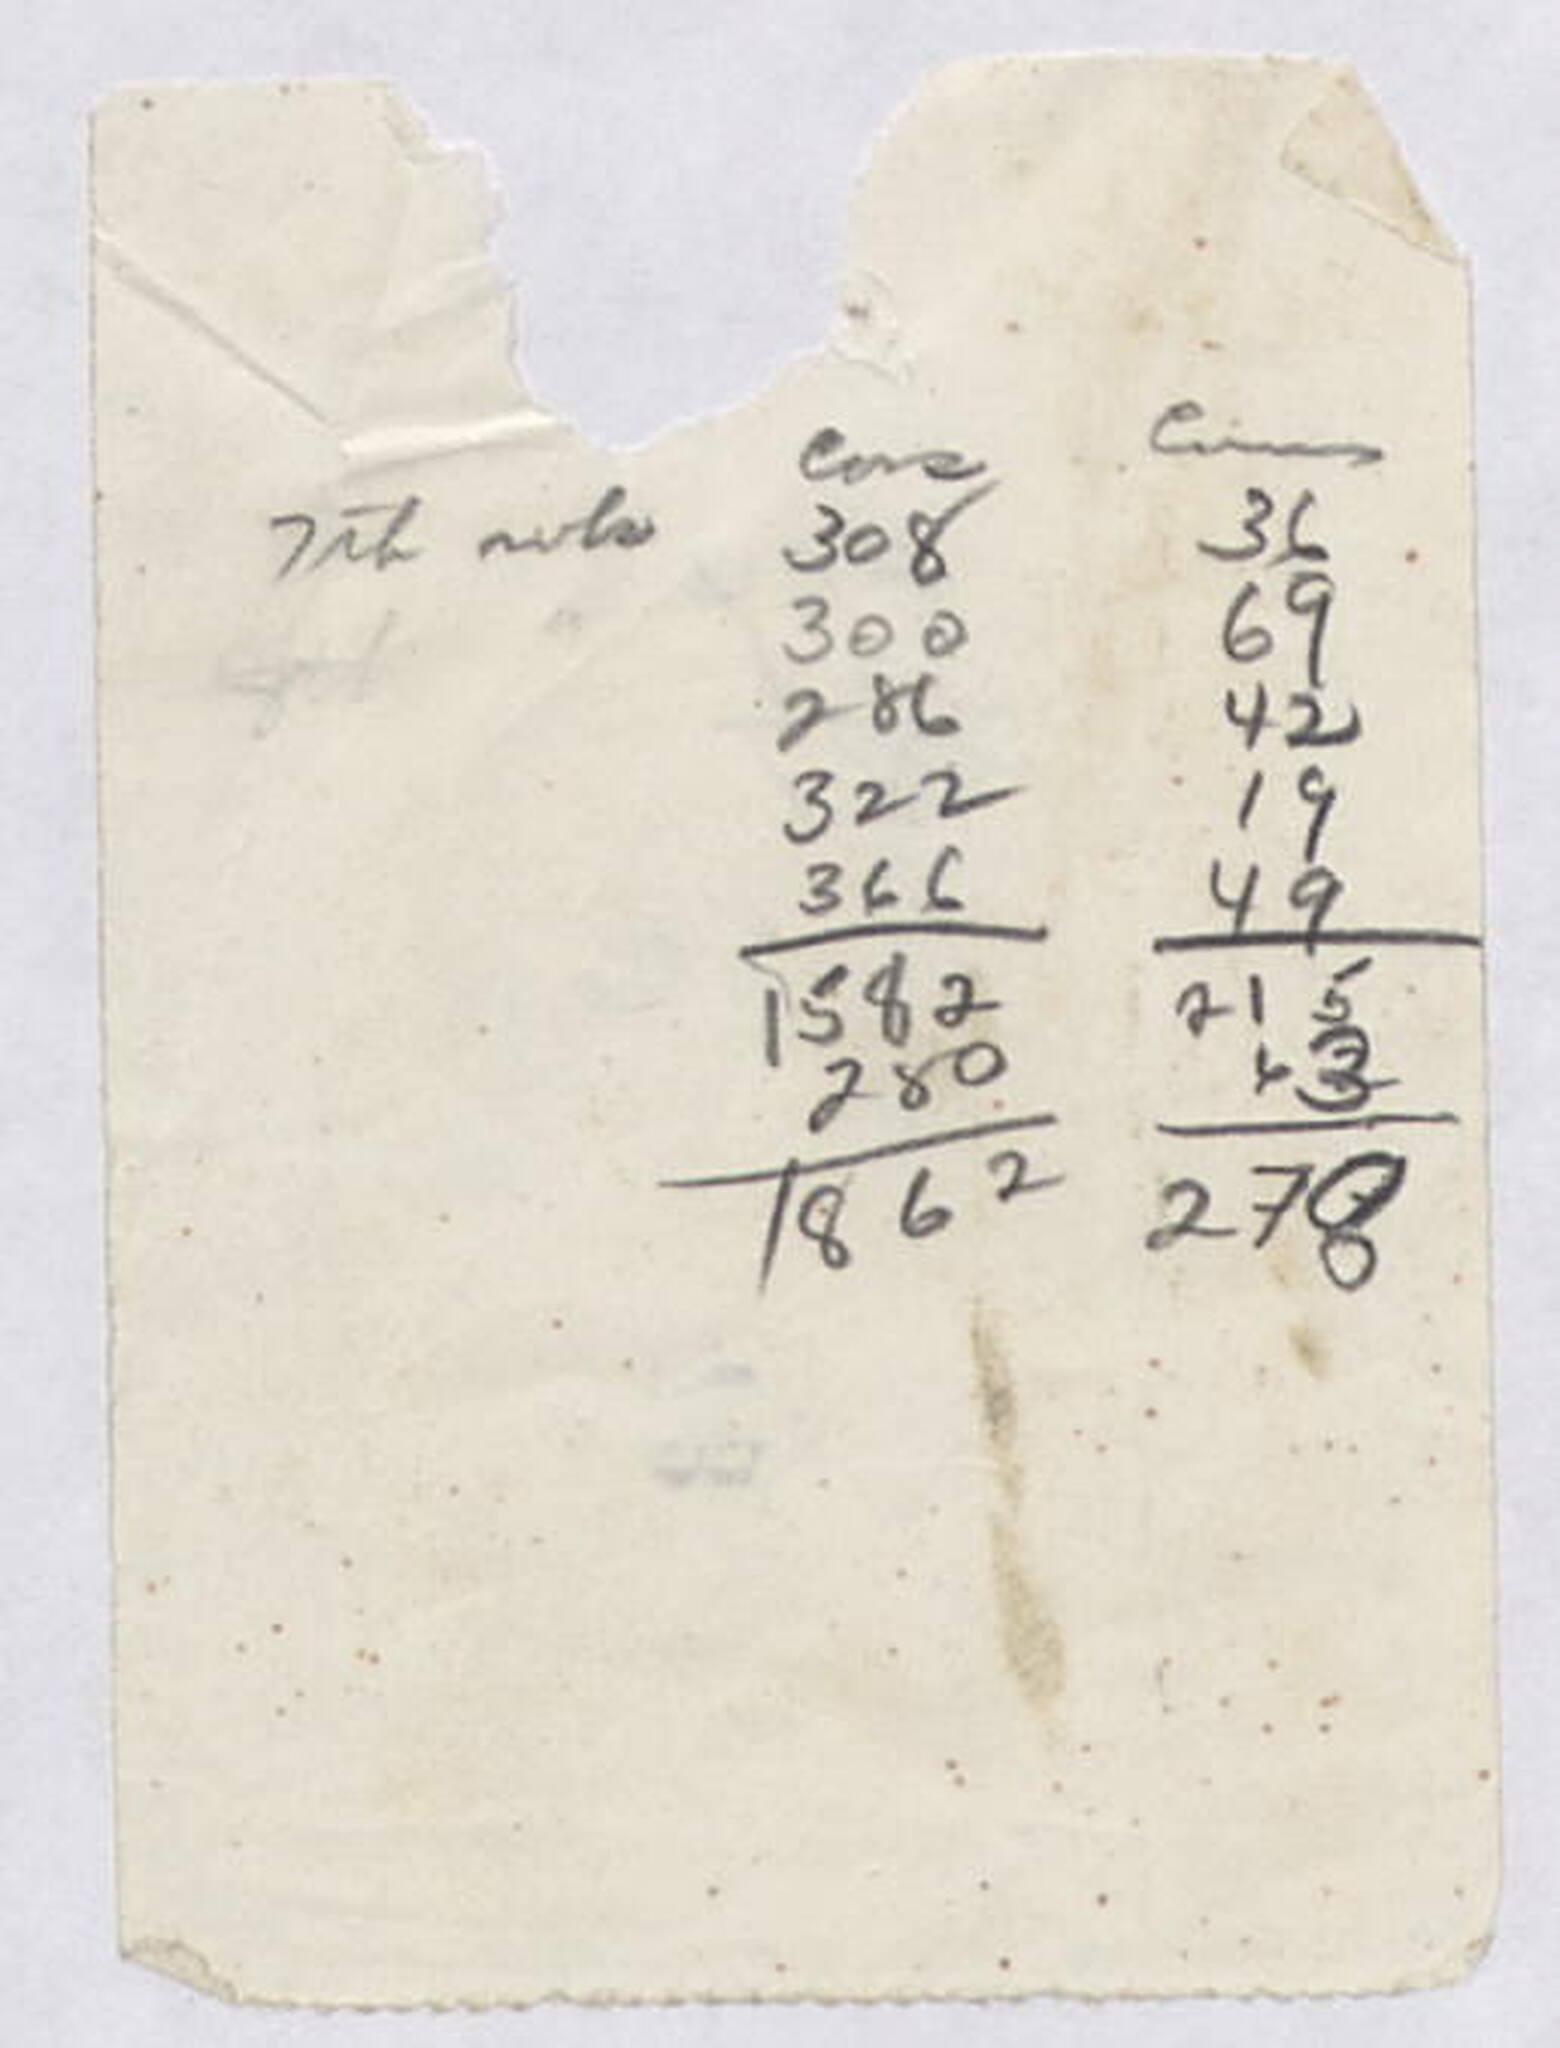 Cons
7th
308 36
300 69
286 42
322 19
366 49
1582 215
280
1862 278